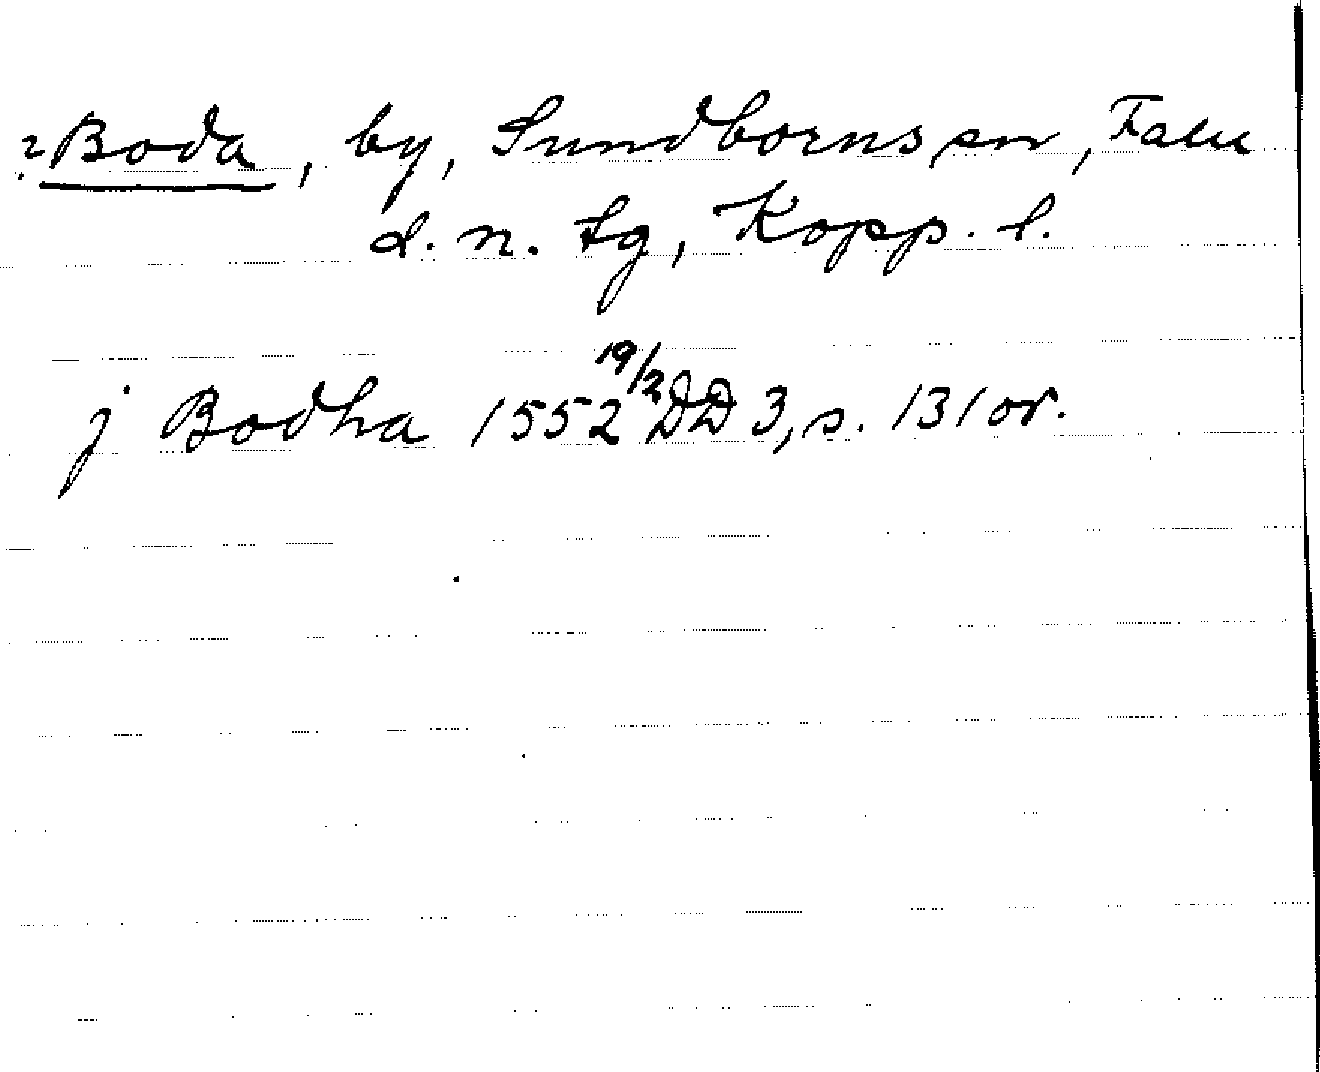 ? Boda, by, Sundborns sn, Falu
d. n. tg, Kopp. l.
j Bodha 1552 19/2 DD 3, s. 131 or.